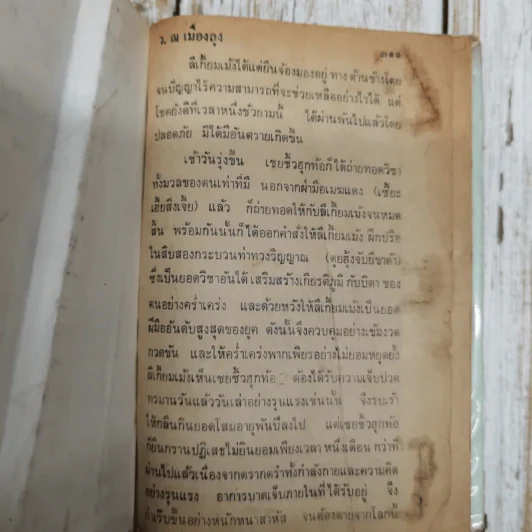 ว. ณ เมืองลุง
๓๑๑
ลีเกี้ยมเม้งได้แต่ยืนจ้องมองอยู่ ทาง ด้านข้างโดย
จนปัญญาไร้ความสามารถที่จะช่วยเหลืออย่างไรได้ แต่
โชคยังดีที่เวลาหนึ่งชั่วยามนี้ ได้ผ่านพ้นไปแล้วโดย
ปลอดภัย มิได้มีอันตรายเกิดขึ้น
เช้าวันรุ่งขึ้น เซยชิ้วฮุกท้อก็ได้ถ่ายทอดวิชา
ทั้งมวลของตนเท่าที่มี นอกจากฝ่ามือเมฆแดง (เซี้ยะ
เฮี้ยสิ่งเจี้ย) แล้ว ก็ถ่ายทอดให้กับลีเกี้ยมเม้งจนหมด
สิ้น พร้อมกันนั้นก็ได้ออกคำสั่งให้ลีเกี้ยมเม้ง ฝึกปรือ
ในสิบสองกระบวนท่าทวงวิญญาณ (ตุยฮุ้งจับยี่ซาคับ
ซึ่งเป็นยอดวิชาอันได้ เสริมสร้างเกียรติภูมิ กับบิดา ของ
ตนอย่างคร่ำเคร่ง และด้วยหวังให้ลีเกี้ยมเม้งเป็นยอด
ฝีมืออันดับสูงสุดของยุค ดังนั้นจึงควบคุมอย่างเข้มงวด
กวดขัน และให้คร่ำเคร่งพากเพียรอย่างไม่ยอมหยุดยั้ง
ลีเกี้ยมเม้งเห็นเซยชิ้วฮุกท้อ ต้องได้รับความเจ็บปวด
ทรมานวันแล้ววันเล่าอย่างรุนแรงเช่นนั้น จึงรบเร้า
ให้กลืนกินยอดโสมอายุพันปีลงไป แต่เซยชิ้วฮุกท้อ
ก็ยืนกรานปฏิเสธไม่ยินยอมเพียงเวลา หนึ่งเดือน กว่าที่
ผ่านไปแล้วเนื่องจากตรากตรำทั้งกำลังกายและความคิด
อย่างรุนแรง อาการบาดเจ็บภายในที่ได้รับอยู่ จึง
กำเริบขึ้นอย่างหนักหนาสาหัส จนต้องตายจากโลกนี้